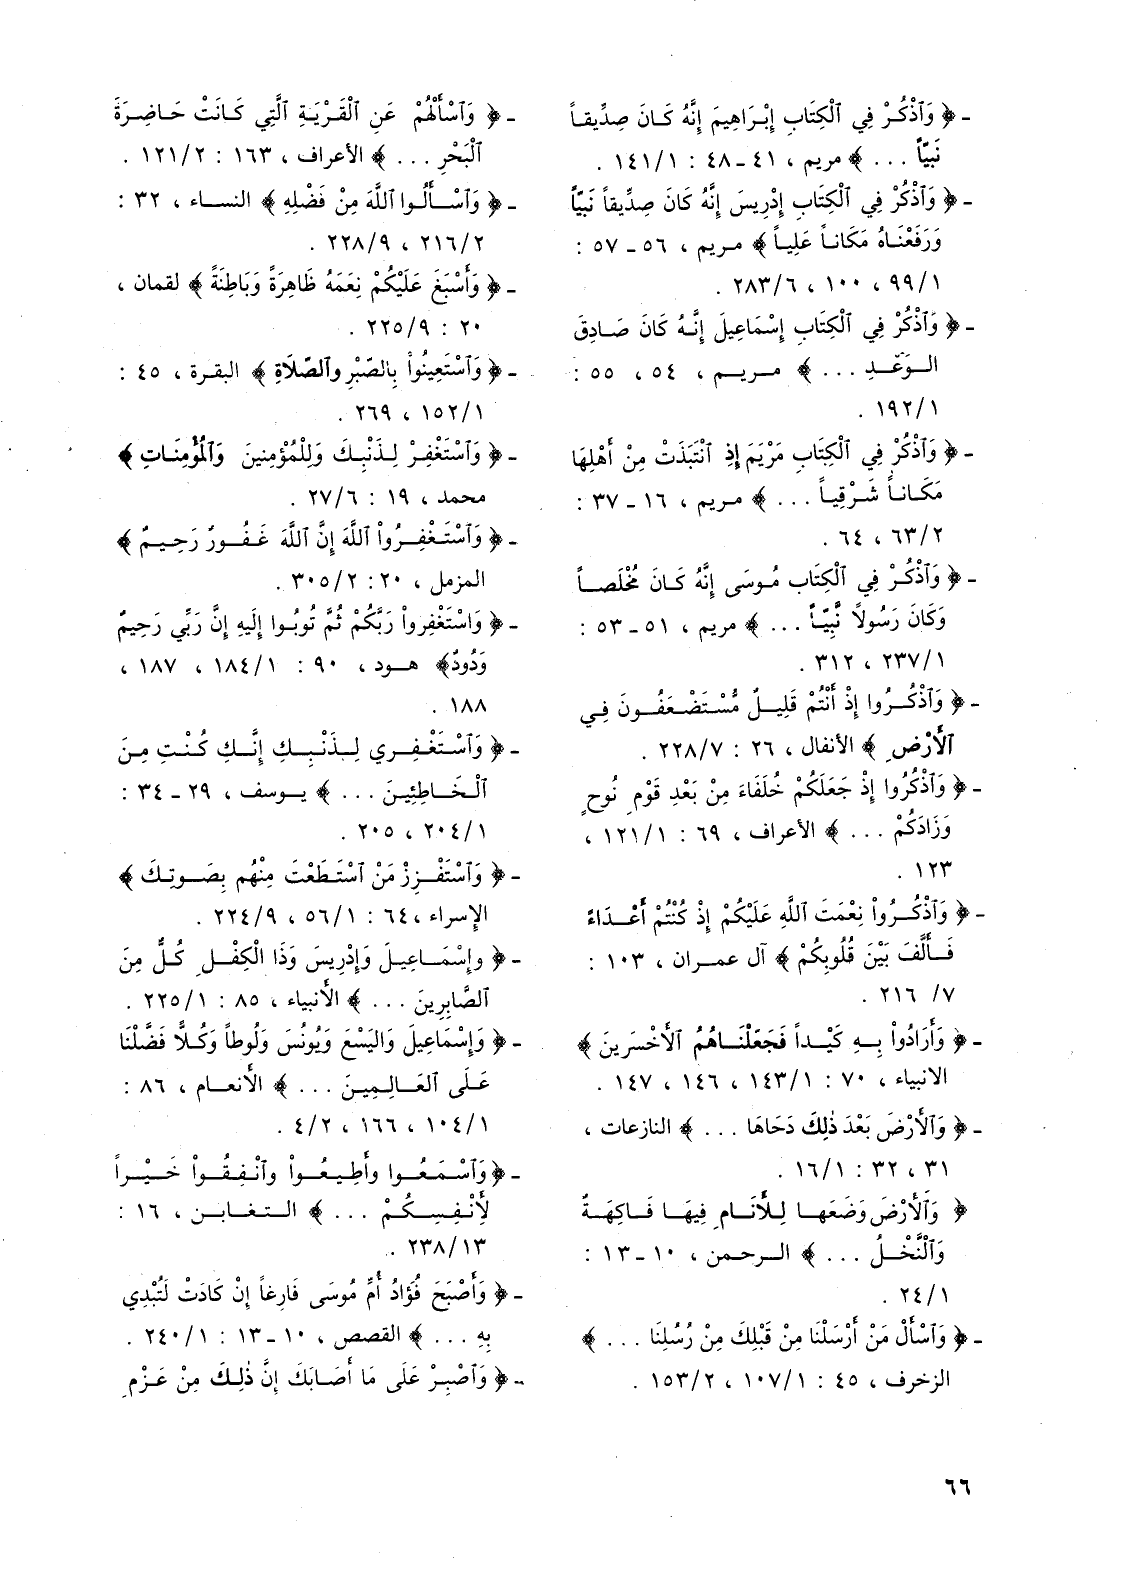 - ﴿ وَٱذْكُرْ فِي ٱلْكِتَابِ إِبْرَاهِيمَ إِنَّهُ كَانَ صِدِّيقاً
نَبِيّاً ... ﴾ مريم ، ٤١ - ٤٨ : ١/١٤١ .
- ﴿ وَٱذْكُرْ فِي ٱلْكِتَابِ إِدْرِيسَ إِنَّهُ كَانَ صِدِّيقاً نَبِيّاً
وَرَفَعْنَاهُ مَكَاناً عَلِيّاً ﴾ مريم ، ٥٦ - ٥٧ :
١/٩٩ ، ١٠٠ ، ٦/٢٨٣ .
- ﴿ وَٱذْكُرْ فِي ٱلْكِتَابِ إِسْمَاعِيلَ إِنَّهُ كَانَ صَادِقَ
الوَعْدِ ... ﴾ مريم ، ٥٤ ، ٥٥ :
١/١٩٢ .
- ﴿ وَٱذْكُرْ فِي ٱلْكِتَابِ مَرْيَمَ إِذِ ٱنْتَبَذَتْ مِنْ أَهْلِهَا
مَكَاناً شَرْقِيّاً ... ﴾ مريم ، ١٦ - ٣٧ :
٢/٦٣ ، ٦٤ .
- ﴿ وَٱذْكُرْ فِي ٱلْكِتَابِ مُوسَى إِنَّهُ كَانَ مُخْلَصاً
وَكَانَ رَسُولاً نَّبِيّاً ... ﴾ مريم ، ٥١ - ٥٣ :
١/٢٣٧ ، ٣١٢ .
- ﴿ وَٱذْكُرُوا إِذْ أَنْتُمْ قَلِيلٌ مُسْتَضْعَفُونَ فِي
ٱلْأَرْضِ ﴾ الأنفال ، ٢٦ : ٧/٢٢٨ .
- ﴿ وَٱذْكُرُوا إِذْ جَعَلَكُمْ خُلَفَاءَ مِنْ بَعْدِ قَوْمِ نُوحٍ
وَزَادَكُمْ ... ﴾ الأعراف ، ٦٩ : ١/١٢١ ،
١٢٣ .
- ﴿ وَٱذْكُرُواْ نِعْمَتَ ٱللَّهِ عَلَيْكُمْ إِذْ كُنْتُمْ أَعْدَاءً
فَأَلَّفَ بَيْنَ قُلُوبِكُمْ ﴾ آل عمران ، ١٠٣ :
٧/ ٢١٦ .
- ﴿ وَأَرَادُواْ بِهِ كَيْداً فَجَعَلْنَاهُمُ ٱلْأَخْسَرِينَ ﴾
الانبياء ، ٧٠ : ١/١٤٣ ، ١٤٦ ، ١٤٧ .
- ﴿ وَٱلْأَرْضَ بَعْدَ ذٰلِكَ دَحَاهَا ... ﴾ النازعات ،
٣١ ، ٣٢ : ١/١٦ .
﴿ وَٱلْأَرْضَ وَضَعَهَا لِلْأَنَامِ فِيهَا فَاكِهَةٌ
وَٱلنَّخْلُ ... ﴾ الرحمن ، ١٠ - ١٣ :
١/٢٤ .
- ﴿ وَٱسْأَلْ مَنْ أَرْسَلْنَا مِنْ قَبْلِكَ مِنْ رُسُلِنَا ... ﴾
الزخرف ، ٤٥ : ١/١٠٧ ، ٢/١٥٣ .
- ﴿ وَٱسْأَلْهُمْ عَنِ ٱلْقَرْيَةِ ٱلَّتِي كَانَتْ حَاضِرَةَ
ٱلْبَحْرِ ... ﴾ الأعراف ، ١٦٣ : ٢/١٢١ .
- ﴿ وَٱسْأَلُوا ٱللَّهَ مِنْ فَضْلِهِ ﴾ النساء ، ٣٢ :
٢/٢١٦ ، ٩/٢٢٨ .
- ﴿ وَأَسْبَغَ عَلَيْكُمْ نِعَمَهُ ظَاهِرَةً وَبَاطِنَةً ﴾ لقمان ،
٢٠ : ٩/٢٢٥ .
- ﴿ وَٱسْتَعِينُواْ بِالصَّبْرِ وَٱلصَّلَاةِ ﴾ البقرة ، ٤٥ :
١/١٥٢ ، ٢٦٩ .
- ﴿ وَٱسْتَغْفِرْ لِذَنْبِكَ وَلِلْمُؤْمِنِينَ وَٱلْمُؤْمِنَاتِ ﴾
محمد ، ١٩ : ٦/٢٧ .
- ﴿ وَٱسْتَغْفِرُواْ ٱللَّهَ إِنَّ ٱللَّهَ غَفُورٌ رَحِيمٌ ﴾
المزمل ، ٢٠ : ٢/٣٠٥ .
- ﴿ وَاسْتَغْفِرواْ رَبَّكُمْ ثُمَّ تُوبُوا إِلَيهِ إِنَّ رَبِّي رَحِيمٌ
وَدُودٌ ﴾ هود ، ٩٠ : ١/١٨٤ ، ١٨٧ ،
١٨٨ .
- ﴿ وَٱسْتَغْفِرِي لِذَنْبِكِ إِنَّكِ كُنْتِ مِنَ
ٱلْخَاطِئِينَ ... ﴾ يوسف ، ٢٩ - ٣٤ :
١/٢٠٤ ، ٢٠٥ .
- ﴿ وَٱسْتَفْزِزْ مَنْ ٱسْتَطَعْتَ مِنْهُم بِصَوتِكَ ﴾
الإسراء ، ٦٤ : ١/٥٦ ، ٩/٢٢٤ .
- ﴿ وإِسْمَاعِيلَ وَإِدْرِيسَ وَذَا الْكِفْلِ كُلٌّ مِنَ
ٱلصَّابِرِينَ ... ﴾ الأنبياء ، ٨٥ : ١/٢٢٥ .
- ﴿ وَإِسْمَاعِيلَ وَالْيَسَعَ وَيُونُسَ وَلُوطاً وَكُلاًّ فَضَّلْنَا
عَلَى ٱلعَالَمِينَ ... ﴾ الأنعام ، ٨٦ :
١/١٠٤ ، ١٦٦ ، ٢/٤ .
- ﴿ وَٱسْمَعُوا وأَطِيعُواْ وأَنْفِقُواْ خَيْراً
لأَنْفِسِكُمْ ... ﴾ التغابن ، ١٦ :
١٣/٢٣٨ .
- ﴿ وَأَصْبَحَ فُؤَادُ أُمِّ مُوسَى فَارِغاً إِنْ كَادَتْ لَتُبْدِي
بِهِ ... ﴾ القصص ، ١٠ - ١٣ : ١/٢٤٠ .
- ﴿ وَٱصْبِرْ عَلَى مَا أَصَابَكَ إِنَّ ذٰلِكَ مِنْ عَزْمِ
٦٦